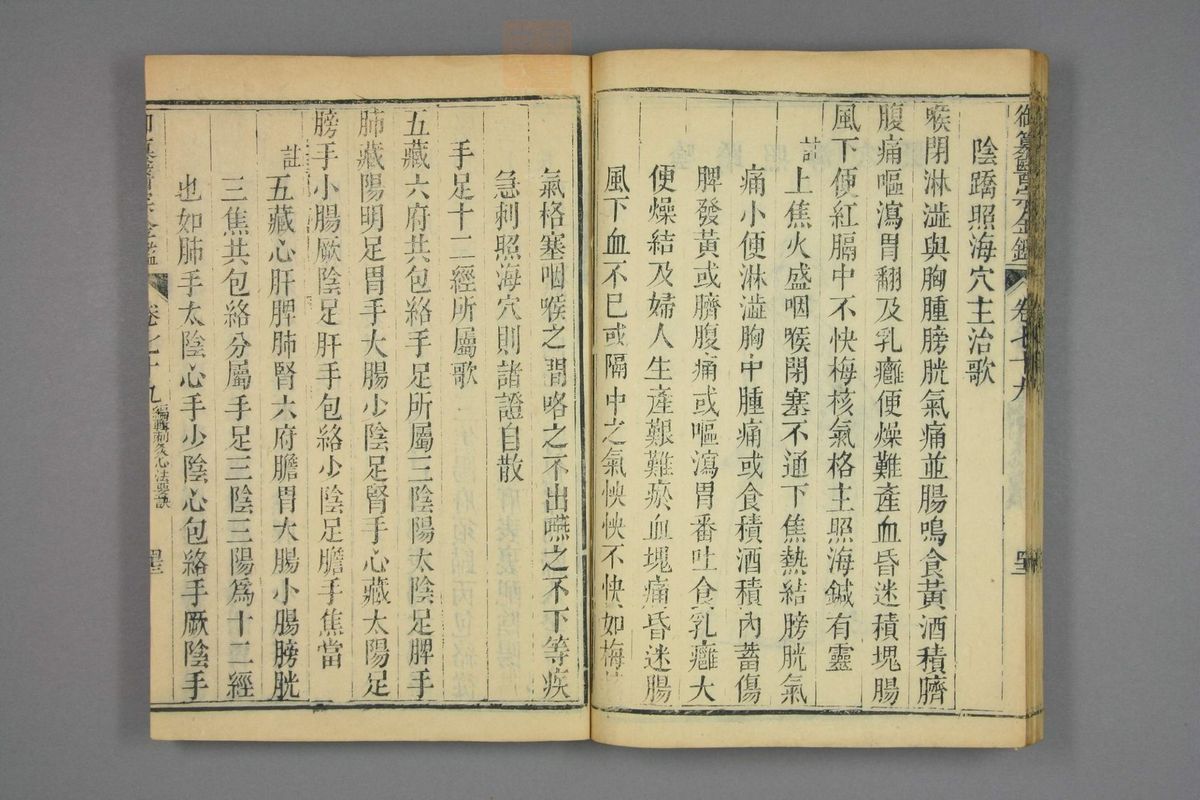 御纂醫宗金鑑 卷七十九 四三
陰蹻照海穴主治歌
喉閉淋澁與胸腫膀胱氣痛並腸鳴食黃酒積臍
腹痛嘔瀉胃翻及乳癰便燥難產血昏迷積塊腸
風下便紅膈中不快梅核氣格主照海鍼有靈
註上焦火盛咽喉閉塞不通下焦熱結膀胱氣
痛小便淋澁胸中腫痛或食積酒積內蓄傷
脾發黃或臍腹痛或嘔瀉胃番吐食乳癰大
便燥結及婦人生產艱難瘀血塊痛昏迷腸
風下血不已或隔中之氣怏怏不快如梅
氣格塞咽喉之間咯之不出嚥之不下等疾
急刺照海穴則諸證自散
手足十二經所屬歌
五藏六府共包絡手足所屬三陰陽太陰足脾手
肺藏陽明足胃手大腸少陰足腎手心藏太陽足
膀手小腸厥陰足肝手包絡少陰足膽手焦當
註五藏心肝脾肺腎六府膽胃大腸小腸膀胱
三焦共包絡分屬手足三陰三陽爲十二經
也如肺手太陰心手少陰心包絡手厥陰手
卷七十九 編輯刺灸心法要訣 四三